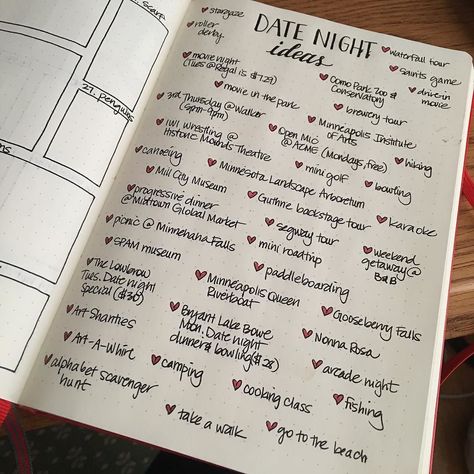 scarf
21. penguins
ns
DATE NIGHT
ideas
stargaze
roller
derby
waterfall tour
movie night
(Tues @ Regal is $7.27)
Como Park Zoo &
Conservatory
saints game
drive-in
movie
movie in the park
brewery tour
3rd Thursday @ Walker
(5pm-9pm)
Minneapolis Institute
of Arts
IWI wrestling @
Historic Mounds Theatre
Open Mic
@ ACME (Mondays, free)
hiking
canoeing
mini golf
bowling
Minnesota Landscape Arboretum
Mill City Museum
Guthrie backstage tour
karaoke
progressive dinner
@ Midtown Global Market
segway tour
weekend
getaway @
B&B
picnic @ Minnehaha Falls
mini roadtrip
SPAM museum
paddleboarding
The Lowbrow
Tues. Date night
Special ($30)
Minneapolis Queen
Riverboat
Gooseberry Falls
Art Shanties
Bryant Lake Bowl
Mon. Date night
dinner & bowling ($28)
Nonna Rosa
Art-A-Whirl
arcade night
alphabet scavenger
hunt
camping
cooking class
fishing
take a walk
go to the beach